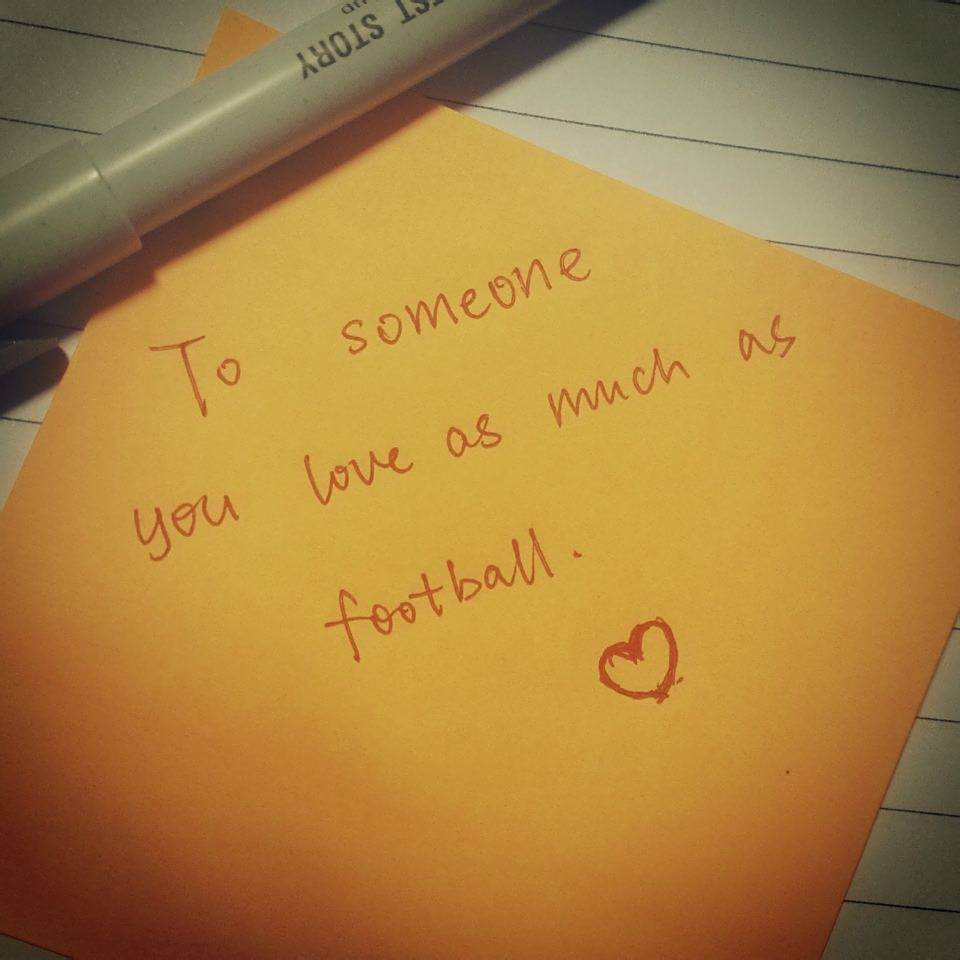 EST STORY
To someone
you love as much as
football.